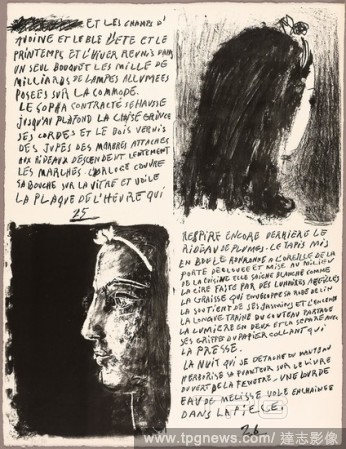 ET LES CHAMPS D'
AVOINE ET LE BLE L'ETE ET LE
PRINTEMPS ET L'HIVER REUNIS DANS
UN SEUL BOUQUET LES MILLE DE
MILLIARDS DE LAMPES ALLUMEES
POSEES SUR LA COMMODE.
LE SOFA CONTRACTE SE HAUSSE
JUSQU'AU PLAFOND LA CHAISE GRINCE
SES CORDES ET LE BOIS VERNIS
DES JUPES DES MARBRES ATTACHES
AUX RIDEAUX DESCENDENT LENTEMENT
LES MARCHES. L'HORLOGE COUVRE
SA BOUCHE SUR LA VITRE ET VOILE
LA PLAQUE DE L'HEURE QUI
25
RESPIRE ENCORE DERRIERE LE
RIDEAU DE PLUMES. LE TAPIS MIS
EN BOULE RONRONNE A L'OREILLE DE LA
PORTE DECLOUEE ET MISE AU MILIEU
DE LA CUISINE ELLE SAIGNE BLANCHE COMME
LA CIRE FAITE PAR DES LUMIERES
LA GRAISSE QUI ENVELOPPE SA ROBE DE LIN
LA SOUTIENT DE SES JASMINS ET
LA LONGUE TRAINE DU COUTEAU PARTAGE
LA LUMIERE EN DEUX ET LA SEPARE AVEC
SES GRIFFES DU PAPIER COLLANT QUI
LA PRESSE.
LA NUIT QUI SE DETACHE DU MANTEAU
HERBORISE LA PUANTEUR SUR LE LIVRE
OUVERT DE LA FENETRE - UNE LOURDE
EAU DE MELISSE VOLE ENCHAINEE
DANS LA PIECE
26
www.tpgnews.com/ 達志影像